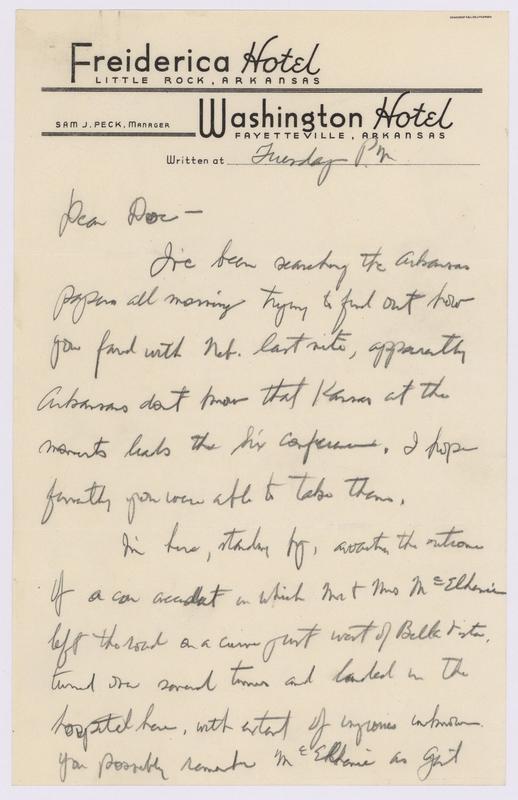 Freiderica Hotel
LITTLE ROCK, ARKANSAS
SAM J. PECK, MANAGER
Washington Hotel
FAYETTEVILLE, ARKANSAS
Written at Tuesday P.M.
Dear Doc —
I've been searching the Arkansas
papers all morning trying to find out how
you fared with Neb. last nite, apparently
Arkansans dont know that Kansas at the
moments leads the Six Conference. I hope
you were able to take them.
I'm here, standing by, awaiting the outcome
of a car accident in which Mr & Mrs McElhenie
left the road on a curve just west of Bella Vista,
turned over several times and landed in the
hospital here, with extent of injuries unknown.
You possibly remember McElhenie as